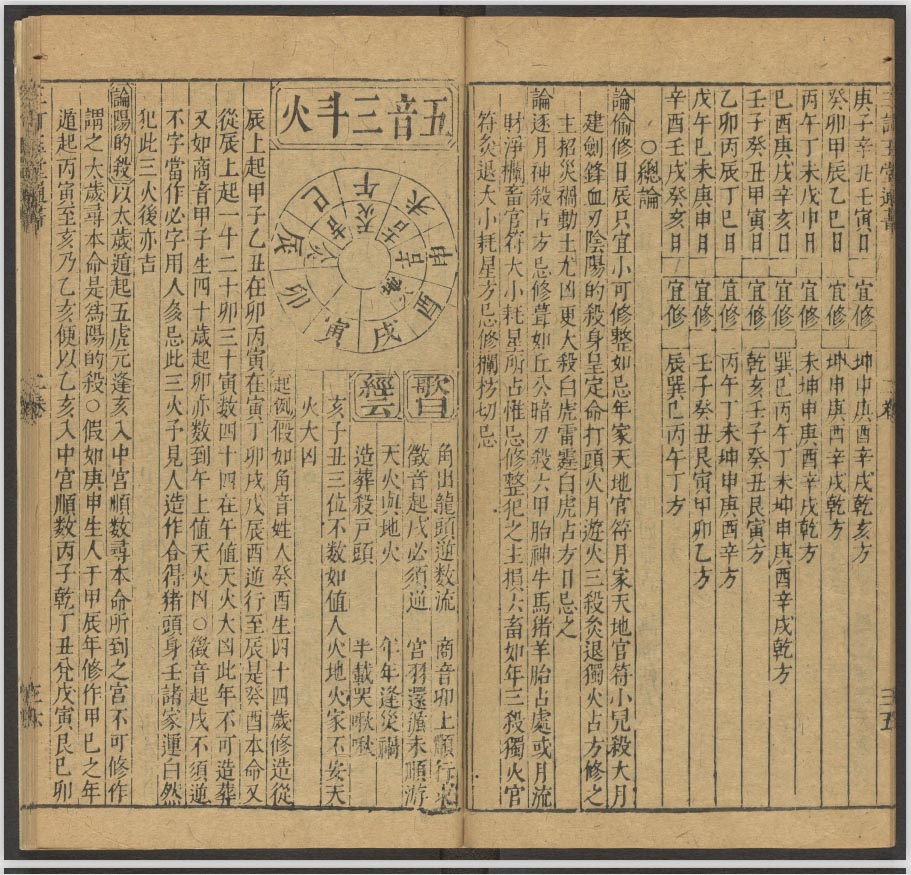 庚子辛丑壬寅日 宜修 坤申庚酉辛戌乾亥方
癸卯甲辰乙巳日 宜修 坤申庚酉辛戌乾方
丙午丁未戊申日 宜修 未坤申庚酉辛戌乾方
己酉庚戌辛亥日 宜修 巽巳丙午丁未坤申庚酉辛戌乾方
壬子癸丑甲寅日 宜修 乾亥壬子癸丑艮寅方
乙卯丙辰丁巳日 宜修 丙午丁未坤申庚酉辛方
戊午己未庚申日 宜修 壬子癸丑艮寅甲卯乙方
辛酉壬戌癸亥日 宜修 辰巽巳丙午丁方
○總論
論偷修日辰只宜小可修整如忌年家天地官符月家天地官符小兒殺大月
建劍鋒血刃陰陽的殺身皇定命打頭火月遊火三殺灸退獨火占方修之
主招災禍動土尤凶更大殺白虎雷霆白虎占方日忌之
論逐月神殺占方忌修葺如丘公暗刃殺六甲胎神牛馬猪羊胎占處或月流
財淨欄畜官符大小耗星所占惟忌修整犯之主損六畜如年三殺獨火官
符灸退大小耗星方忌修攔枋切忌
五音三斗火
午 未 申 酉 戌 寅 卯 辰 巳
歌曰
角出龍頭逆数流 商音卯上順行求
徵音起戌必須逆 宮羽還猺未順游
經云
天火與地火 年年逢災禍
造葬殺戸頭 半載哭啾啾
亥子丑三位不数如值人火地火家不安天
火大凶
起例假如角音姓人癸酉生四十四歲修造從
辰上起甲子乙丑在卯丙寅在寅丁卯戌戊辰酉逆行至辰是癸酉本命又
從辰上起一十二十卯三十寅数四十四在午值天火大凶此年不可造葬
又如商音甲子生四十歲起卯亦数到午上值天火凶○徵音起戌不須逆
不字當作必字用人多忌此三火予見人造作合得猪頭身壬諸家運白然
犯此三火後亦吉
論陽的殺以太歲遁起五虎元逢亥入中宮順数尋本命所到之宮不可修作
謂之太歲尋本命是為陽的殺○假如庚申生人于甲辰年修作甲己之年
遁起丙寅至亥乃乙亥便以乙亥入中宮順数丙子乾丁丑兌戊寅艮己卯